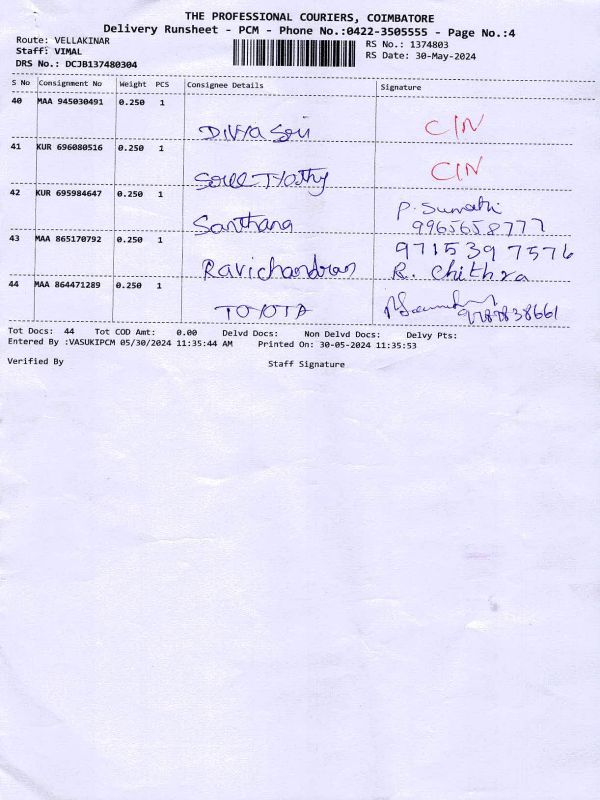 THE PROFESSIONAL COURIERS, COIMBATORE
Delivery Runsheet - PCM - Phone No.:0422-3505555 - Page No.:4
Route: VELLAKINAR
Staff: VIMAL
DRS No.: DCJB137480304
RS No.: 1374803
RS Date: 30-May-2024
S No Consignment No Weight PCS Consignee Details Signature
40 MAA 945030491 0.250 1
Divya Sri CIN
41 KUR 696080516 0.250 1
CIN
42 KUR 695984647 0.250 1
Santhana P. Sumathi 9965658777
43 MAA 865170792 0.250 1
Ravichandran 9715397576 R. Chithra
44 MAA 864471289 0.250 1
TOYOTA 9787838661
Tot Docs: 44 Tot COD Amt: 0.00 Delvd Docs: Non Delvd Docs: Delvy Pts:
Entered By :VASUKIPCM 05/30/2024 11:35:44 AM Printed On: 30-05-2024 11:35:53
Verified By Staff Signature